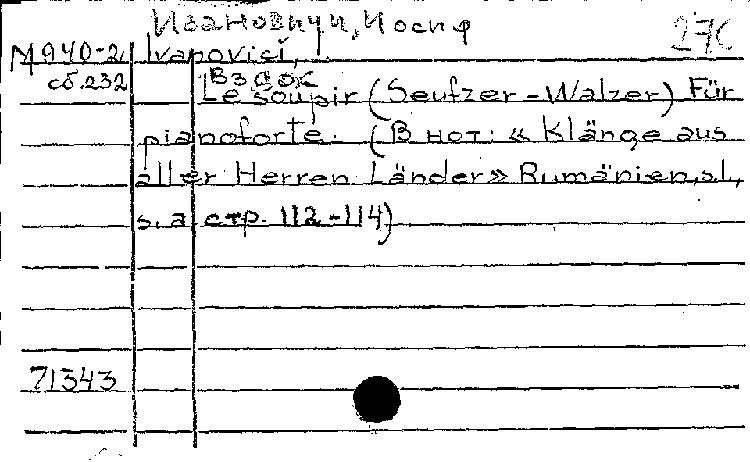 Иванович, Иосиф
270
М940-2 Ivanovici,
сб.232
Вздох
Le soupir (Seufzer-Walzer) Für
pianoforte. (В нот: « Klänge aus
aller Herren Länder» Rumänien, s.l.,
s.a стр. 112-114)
71343